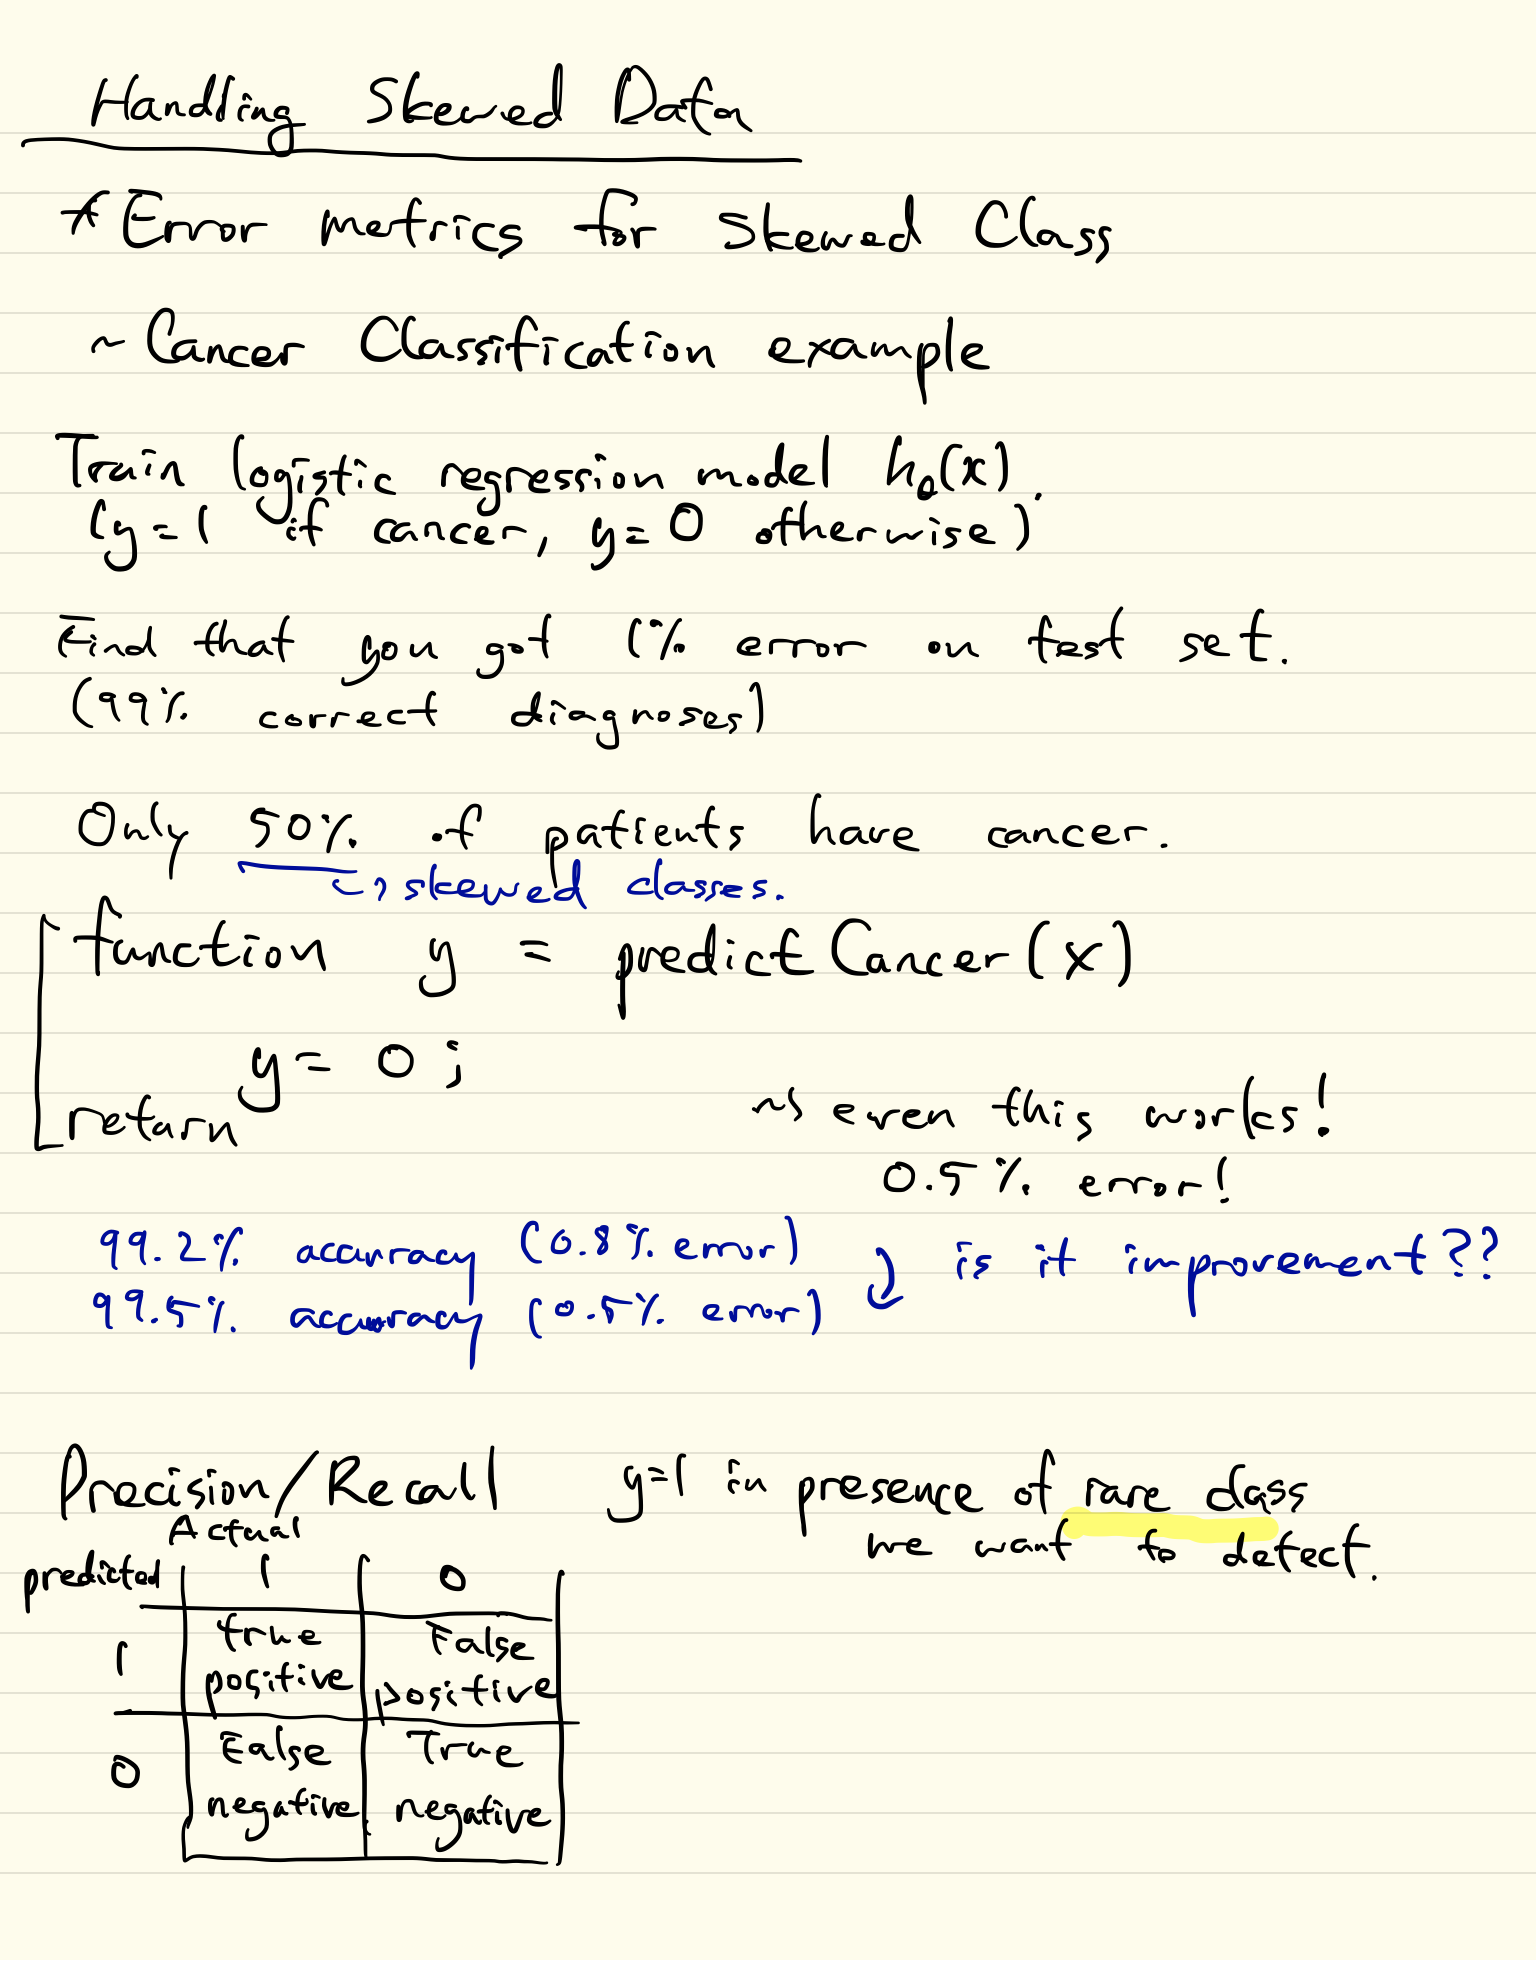 Handling Skewed Data
* Error metrics for skewed Class
~ Cancer Classification example
Train logistic regression model hθ(x).
(y=1 if cancer, y=0 otherwise)
Find that you got 1% error on test set.
(99% correct diagnoses)
Only 50% of patients have cancer.
↪ skewed classes.
function y = predictCancer(x)
y= 0 ;
return
~> even this works!
0.5% error!
99.2% accuracy (0.8% error)
99.5% accuracy (0.5% error)
is it improvement??
Precision/Recall y=1 in presence of rare class
we want to detect.
Actual
predicted 1 0
1 true positive False positive
0 False negative True negative